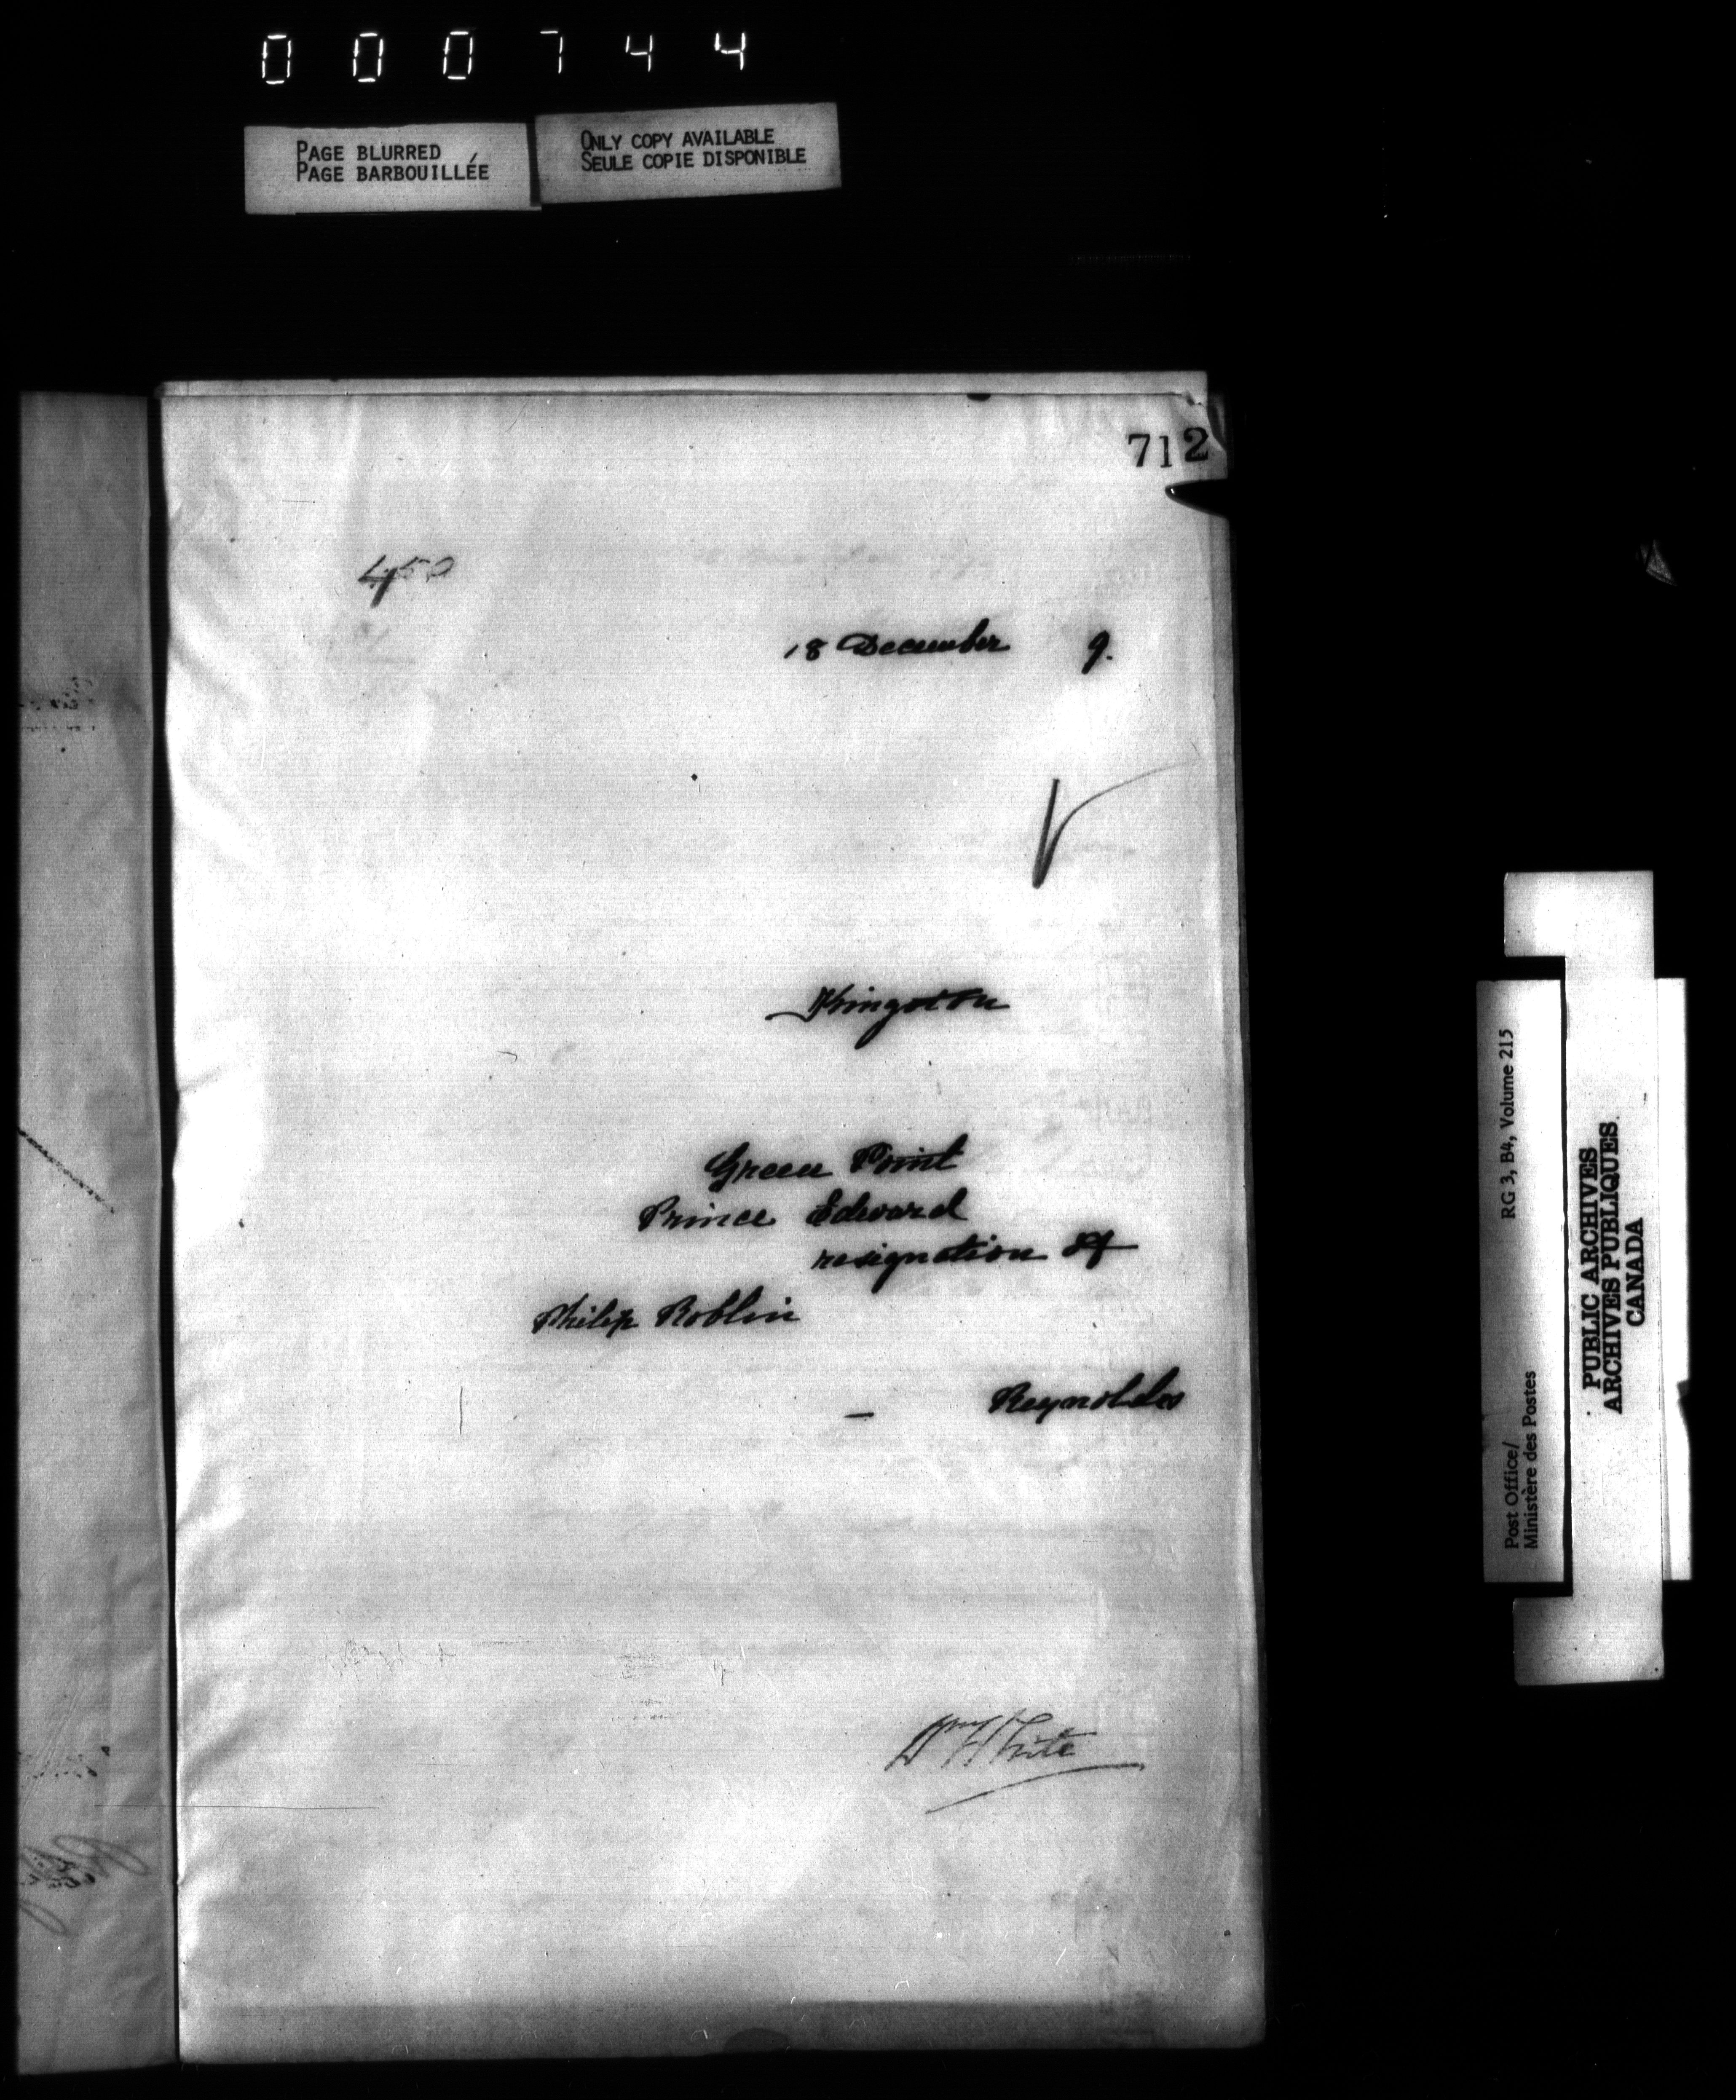 000744
PAGE BLURRED
PAGE BARBOUILLÉE
ONLY COPY AVAILABLE
SEULE COPIE DISPONIBLE
712
450
18 December 9.
Kingston
Green Point
Prince Edward
resignation of
Philip Roblin
— Reynolds
Wm White
RG 3, B4, Volume 215
Post Office/
Ministère des Postes
PUBLIC ARCHIVES
ARCHIVES PUBLIQUES
CANADA